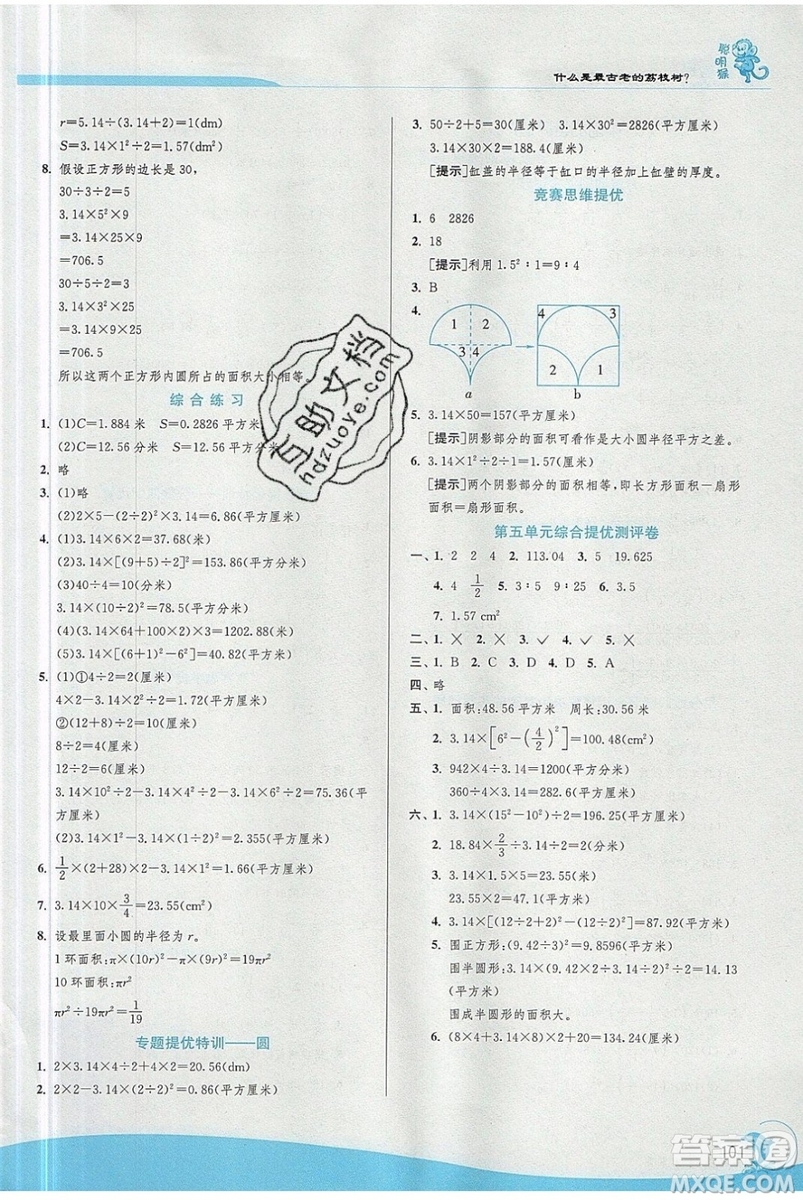 聪明猴
什么是最古老的荔枝树?
r=5.14÷(3.14+2)=1(dm)
S=3.14×1²÷2=1.57(dm²)
8. 假设正方形的边长是30,
30÷3÷2=5
3.14×5²×9
=3.14×25×9
=706.5
30÷5÷2=3
3.14×3²×25
=3.14×9×25
=706.5
所以这两个正方形内圆所占的面积大小相等。
综合练习
1. (1)C=1.884 米 S=0.2826 平方米
(2)C=12.56 分米 S=12.56 平方分米
2. 略
3. (1)略
(2)2×5-(2÷2)²×3.14=6.86(平方厘米)
4. (1)3.14×6×2=37.68(厘米)
(2)3.14×[(9+5)²-9²]=361.1(平方分米)
(3)40÷4=10(分米)
3.14×(10÷2)²=78.5(平方分米)
(4)(3.14×64+100)×4=1202.88(米)
(5)3.14×[(6+1)²-6²]=40.82(平方米)
5. (1)①4÷2=2(厘米)
4×2-3.14×2²÷2=1.72(平方厘米)
②(12+8)÷2=10(厘米)
8÷2=4(厘米)
12÷2=6(厘米)
3.14×10²÷2-3.14×4²÷2-3.14×6²÷2=75.36(平
方厘米)
(2)3.14×2²÷2-3.14×1²÷2=2.355(平方厘米)
6. 1/2×(2+28)×2-3.14×1²=1.66(平方厘米)
7. 3.14×10×3/4=23.55(cm)
8. 设最里面小圆的半径为r。
1环面积:π×(10r)²-π×(9r)²=19πr²
10环面积:πr²
πr²÷19πr²=1/19
专题提优特训——圆
1. 2×3.14×4÷2+4×2=20.56(dm)
2. 2×2-3.14×(2÷2)²=0.86(平方厘米)
3. 50÷2+5=30(厘米) 3.14×30²=2826(平方厘米)
3.14×30×2=188.4(厘米)
[提示]缸盖的半径等于缸口的半径加上缸壁的厚度。
竞赛思维提优
1. 6 2826
2. 18
[提示]利用1.5²∶1=9∶4
3. B
4.
1 2 3 4 a
4 3 2 1 b
5. 3.14×50=157(平方厘米)
[提示]阴影部分的面积可看作是大小圆半径平方之差。
6. 3.14×1²÷2÷1=1.57(厘米)
[提示]两个阴影部分的面积相等,即长方形面积-扇形
面积=扇形面积。
第五单元综合提优测评卷
一、1. 2 2 4 2. 113.04 3. 5 19.625
4. 4 1/2 5. 3∶5 9∶25 6. 3.5
7. 1.57 cm²
二、1. × 2. × 3. ✓ 4. ✓ 5. ×
三、1. B 2. C 3. D 4. D 5. A
四、略
五、1. 面积:48.56 平方米 周长:30.56 米
2. 3.14×[6²-(4/2)²]=100.48(cm²)
3. 942×4÷3.14=1200(平方分米)
360÷4×3.14=282.6(平方米)
六、1. 3.14×(15²-10²)÷2=196.25(平方厘米)
2. 18.84×2/3÷3.14÷2=2(分米)
3. 3.14×1.5×5=23.55(米)
23.55×2=47.1(平方米)
4. 3.14×[(12÷2+2)²-(12÷2)²]=87.92(平方米)
5. 围正方形:(9.42÷3)²=9.8596(平方米)
围半圆形:3.14×(9.42÷3.14)²÷2=14.13
(平方米)
围成半圆形的面积大。
6. (8×4+3.14×8÷2×4)×2+20=134.24(厘米)
互助文档
hdzuoye.com
101
答案圈
MXQE.COM